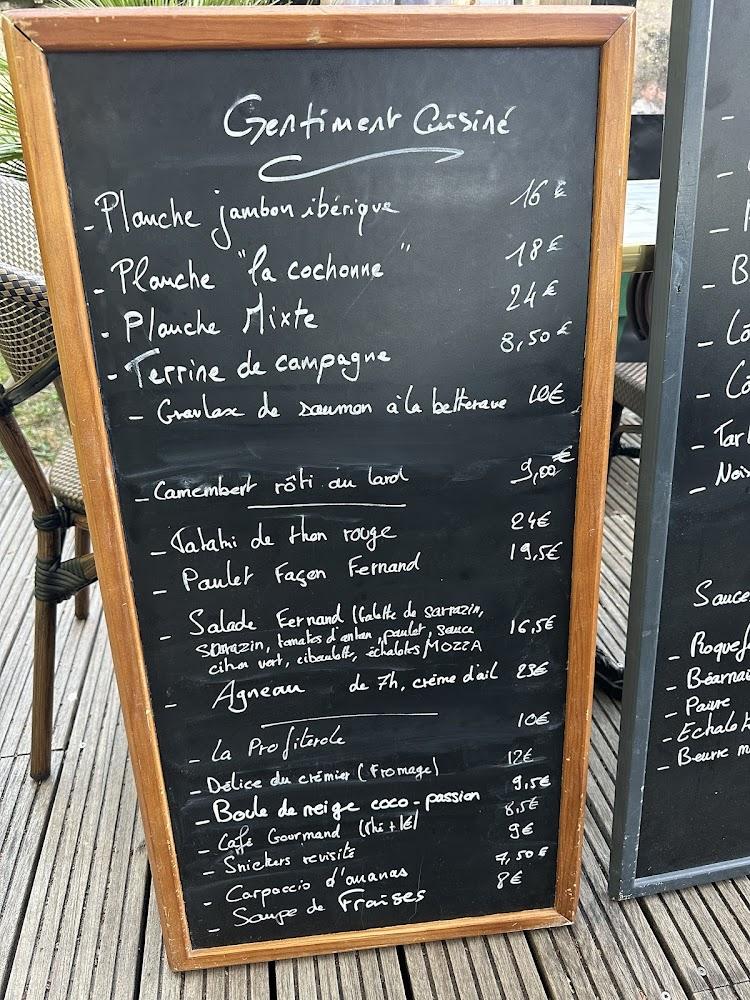 Gentiment Cuisiné
- Planche jambon ibérique 16€
- Planche "la cochonne" 18€
- Planche Mixte 24€
- Terrine de campagne 8,50€
- Gravlax de saumon à la betterave 10€
- Camembert rôti au lard 9,00€
- Tataki de thon rouge 24€
- Poulet Façon Fernand 19,5€
- Salade Fernand (Galette de sarrazin,
sarrazin, tomates d'antan, poulet, sauce 16,5€
citron vert, ciboulette, échalotes, MOZZA
- Agneau de 7h, crème d'ail 23€
- La Profiterole 10€
- Délice du crémier (Fromage) 12€
- Boule de neige coco-passion 9,5€
- Café Gourmand (thé + 1€) 8,5€
- Snickers revisité 9€
- Carpaccio d'ananas 7,50€
- Soupe de Fraises 8€
- B
- Cô
- Cô
- Tart
- Noi
Sauce
- Roquef
- Béarnai
- Poivre
- Echalot
- Beurre m